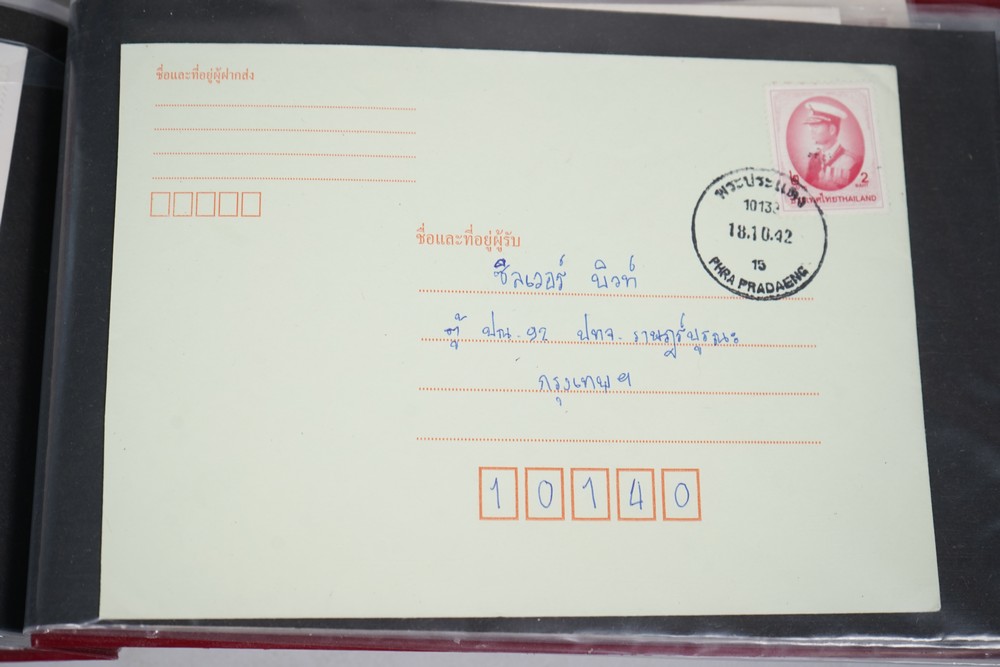 ชื่อและที่อยู่ผู้ฝากส่ง
2
ประเทศไทยTHAILAND
พระประแดง
1013
18.10.42
15
PHRA PRADAENG
ชื่อและที่อยู่ผู้รับ
ซิลเวอร์ พิวท์
ตู้ ปณ. 92 ปทจ. ราษฎร์บูรณะ
กรุงเทพฯ
10140